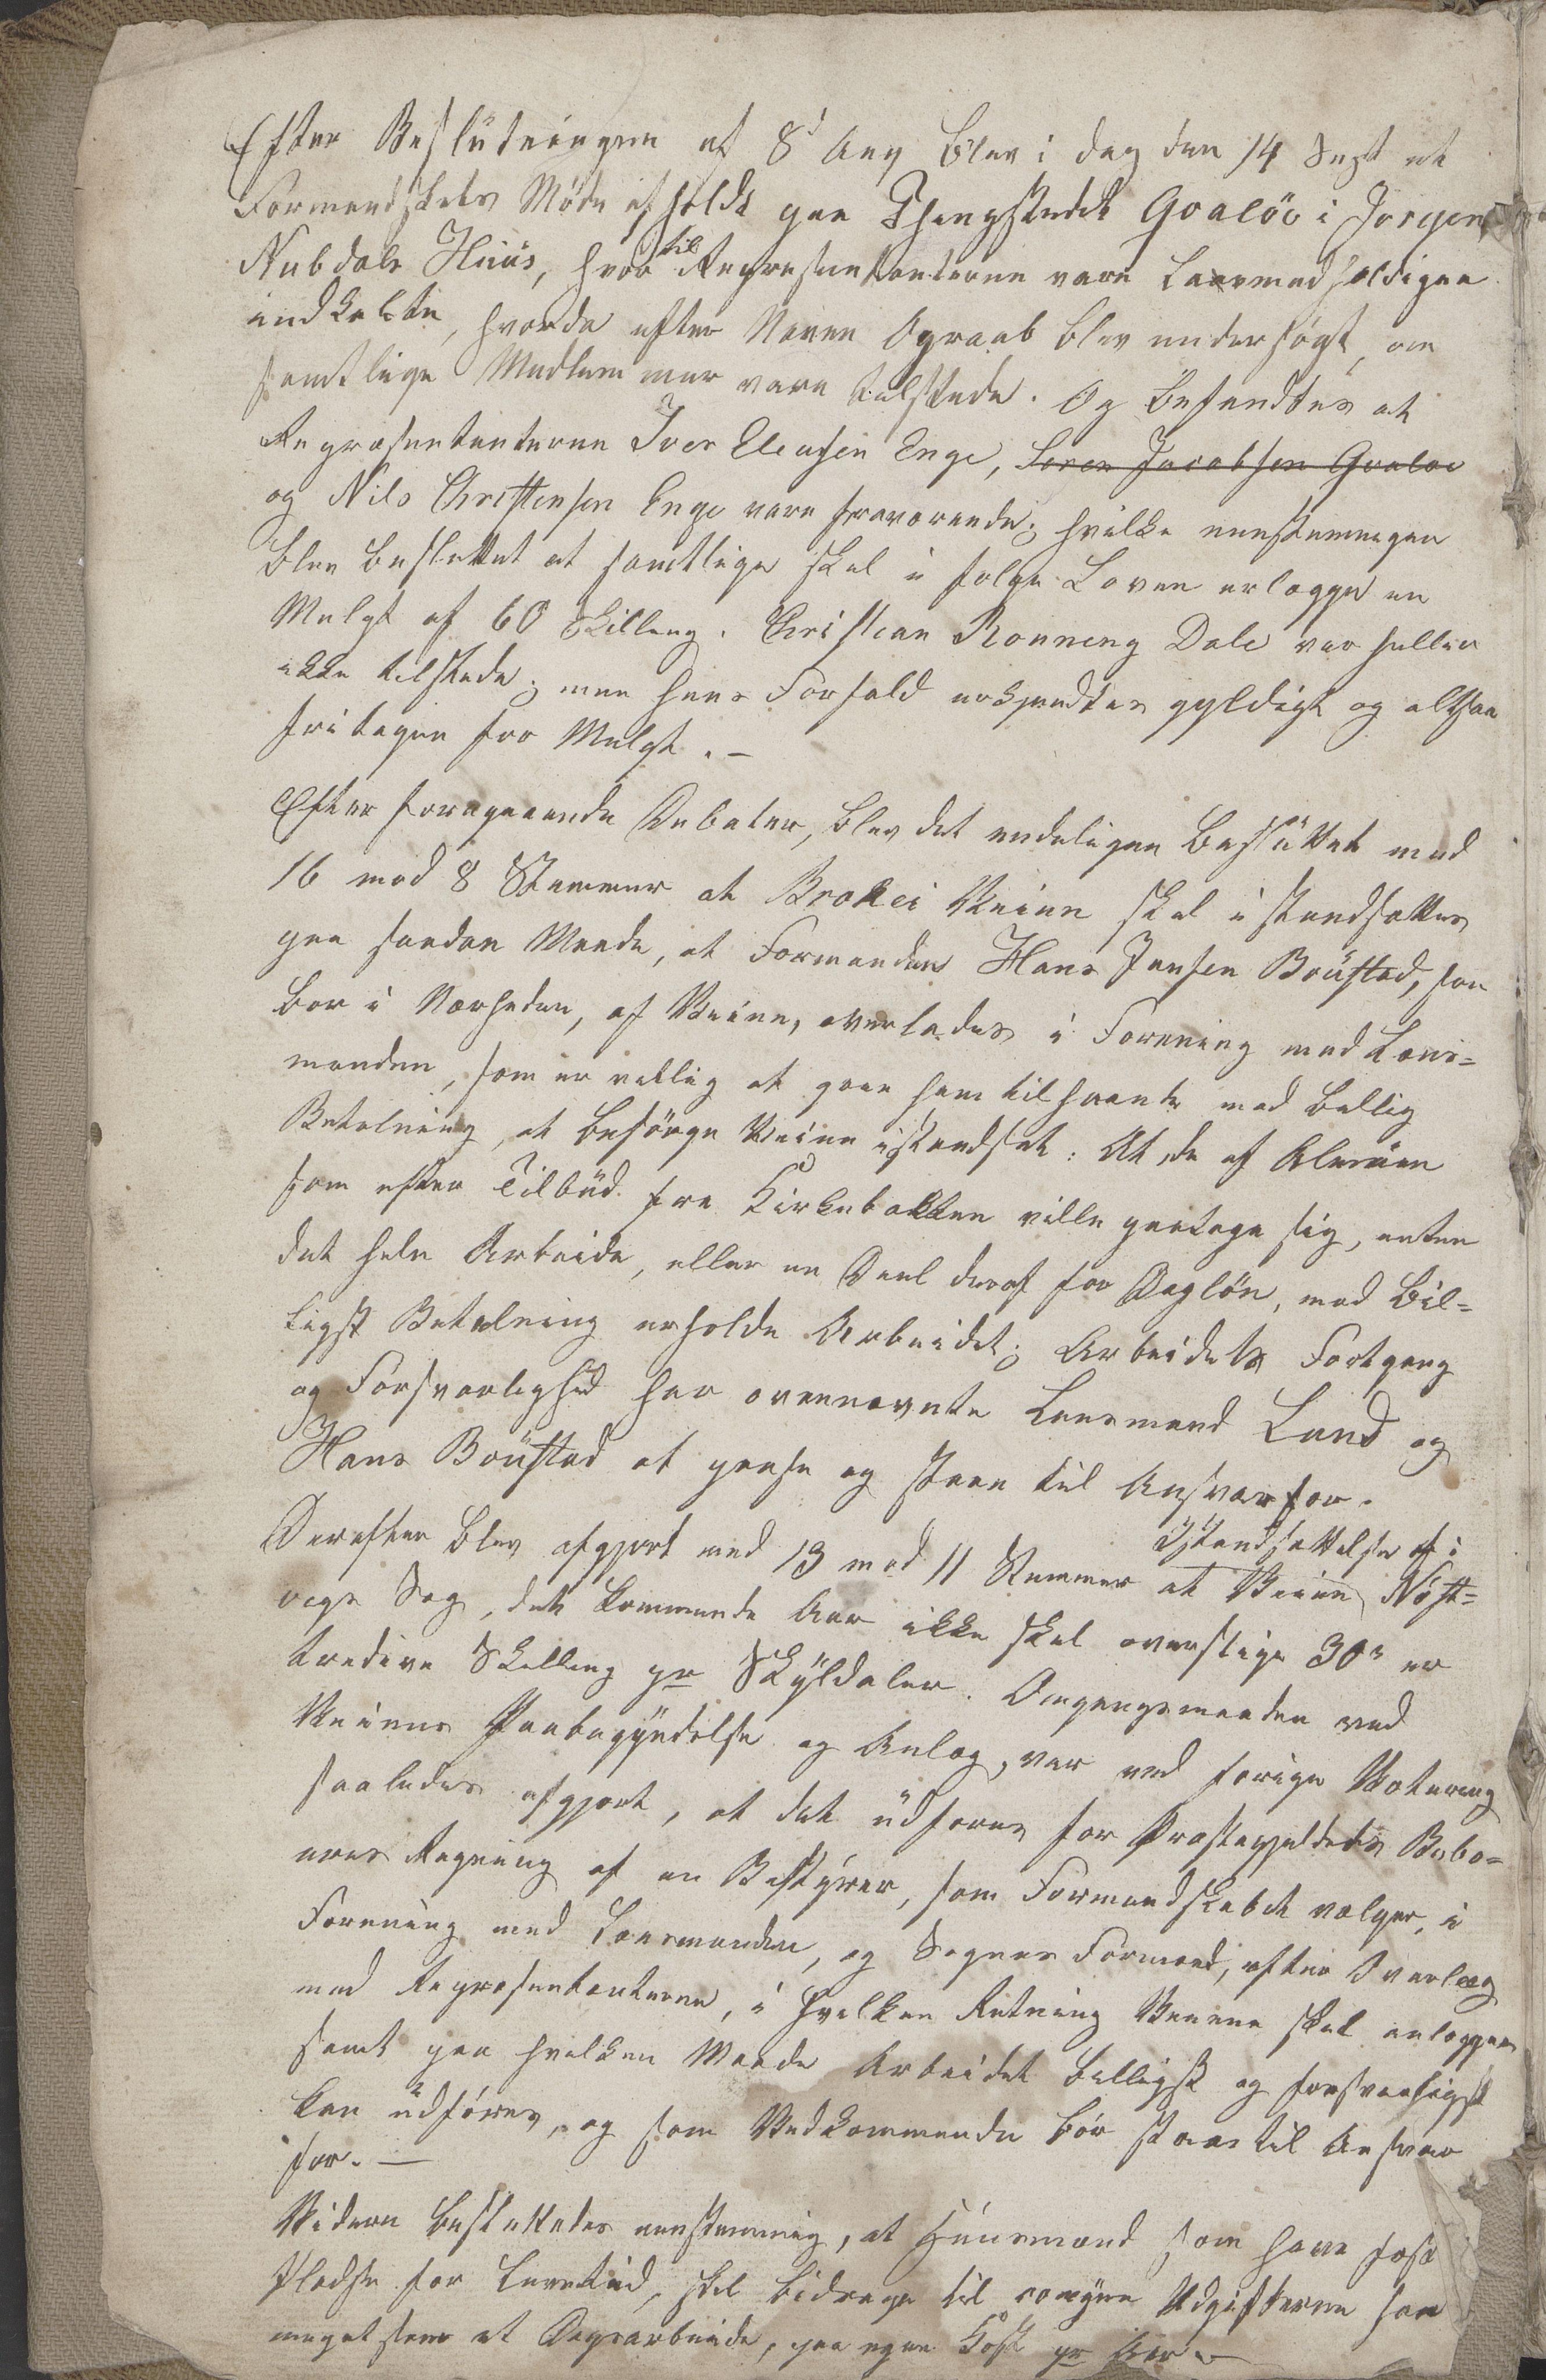 Efter Beslutningen af 8d Aug blev i dag den 14 Sept et
Formandskabs Møde afholdt paa Thingstedet Gvaløe i Jørgen
Nubdals Huus, hvortil Repræsentanterne vare Lovmedholdigen
indkaldte, hvorda efter Navne Opraab blev undersøgt, om
samtlige Medlemmer vare tilstede. Og befandtes at
Repræsentanterne Iver Eleusen Enge, Søren Jacobsen Gvaløe
og Nils Christensen Enge vare fraværende; hvilke eenstemmigen
blev besluttet at samtlige skal i følge Loven erlægge en
Mulgt af 60 Skilling. Christian Rønning Dale var heller
ikke tilstede; men hans Forfald erkjendtes gyldigt og altsaa
fritagen for Mulgt. –
Efter foregaaende Debater, blev det endeligen besluttet med
16 mod 8 Stemmer at Brokei Veien skal i standsættes
paa saadan Maade, at Formanden Hans Jensen Boustad, som
bor i Nærheden, af Veien, overlades i Forening med Læns-
manden, som er villig at gaae ham tilhaande mod billig
Betalning, at besørge Veien istandsat: At, de af Almuen
som efter Tilbud fra Kirkebakken ville paatage sig, enten
det hele Arbeide, eller en Deel deraf for Dagløn, mod bil-
ligst Betalning erholde Arbeidet; Arbeidets Fortgang
og Forsvarlighed har ovennævnte Lensmand Lund og
Hans Boustad at paase og staae til Ansvar for.
Istandsættelse af i
Derefter blev afgjort med 13 mod 11 Stemmer at Veien Nøst-
vigs Sog, dette kommende Aar ikke skal overstige 30 s er
tredive Skilling pr Skyldaler. Omgangsmaaden ved
Veiens Paabegyndelse og Anlæg, var ved forige Votering
saaledes afgjort, at det udføres for Præstegjeldets Bebo-
eres Regning af en Bestyrer, som Formandskabet vælger, i
Forening med Lænsmanden, og Sognes Formand, efter Overlæg
med Repræsentanterne, i hvilken Retning Veiene skal anlægges
samt paa hvilken Maade Arbeidet billigst og forsvarligst
kan udføres, og som Vedkommende bør staae til Ansvar
for. —
Videre besluttedes eenstemmig, at Huusmænd som have fast
Pladse for Levetid, skal bidrage til Udgifterne saa
meget som et Dagsarbeide, paa egen Kost pr Aar –